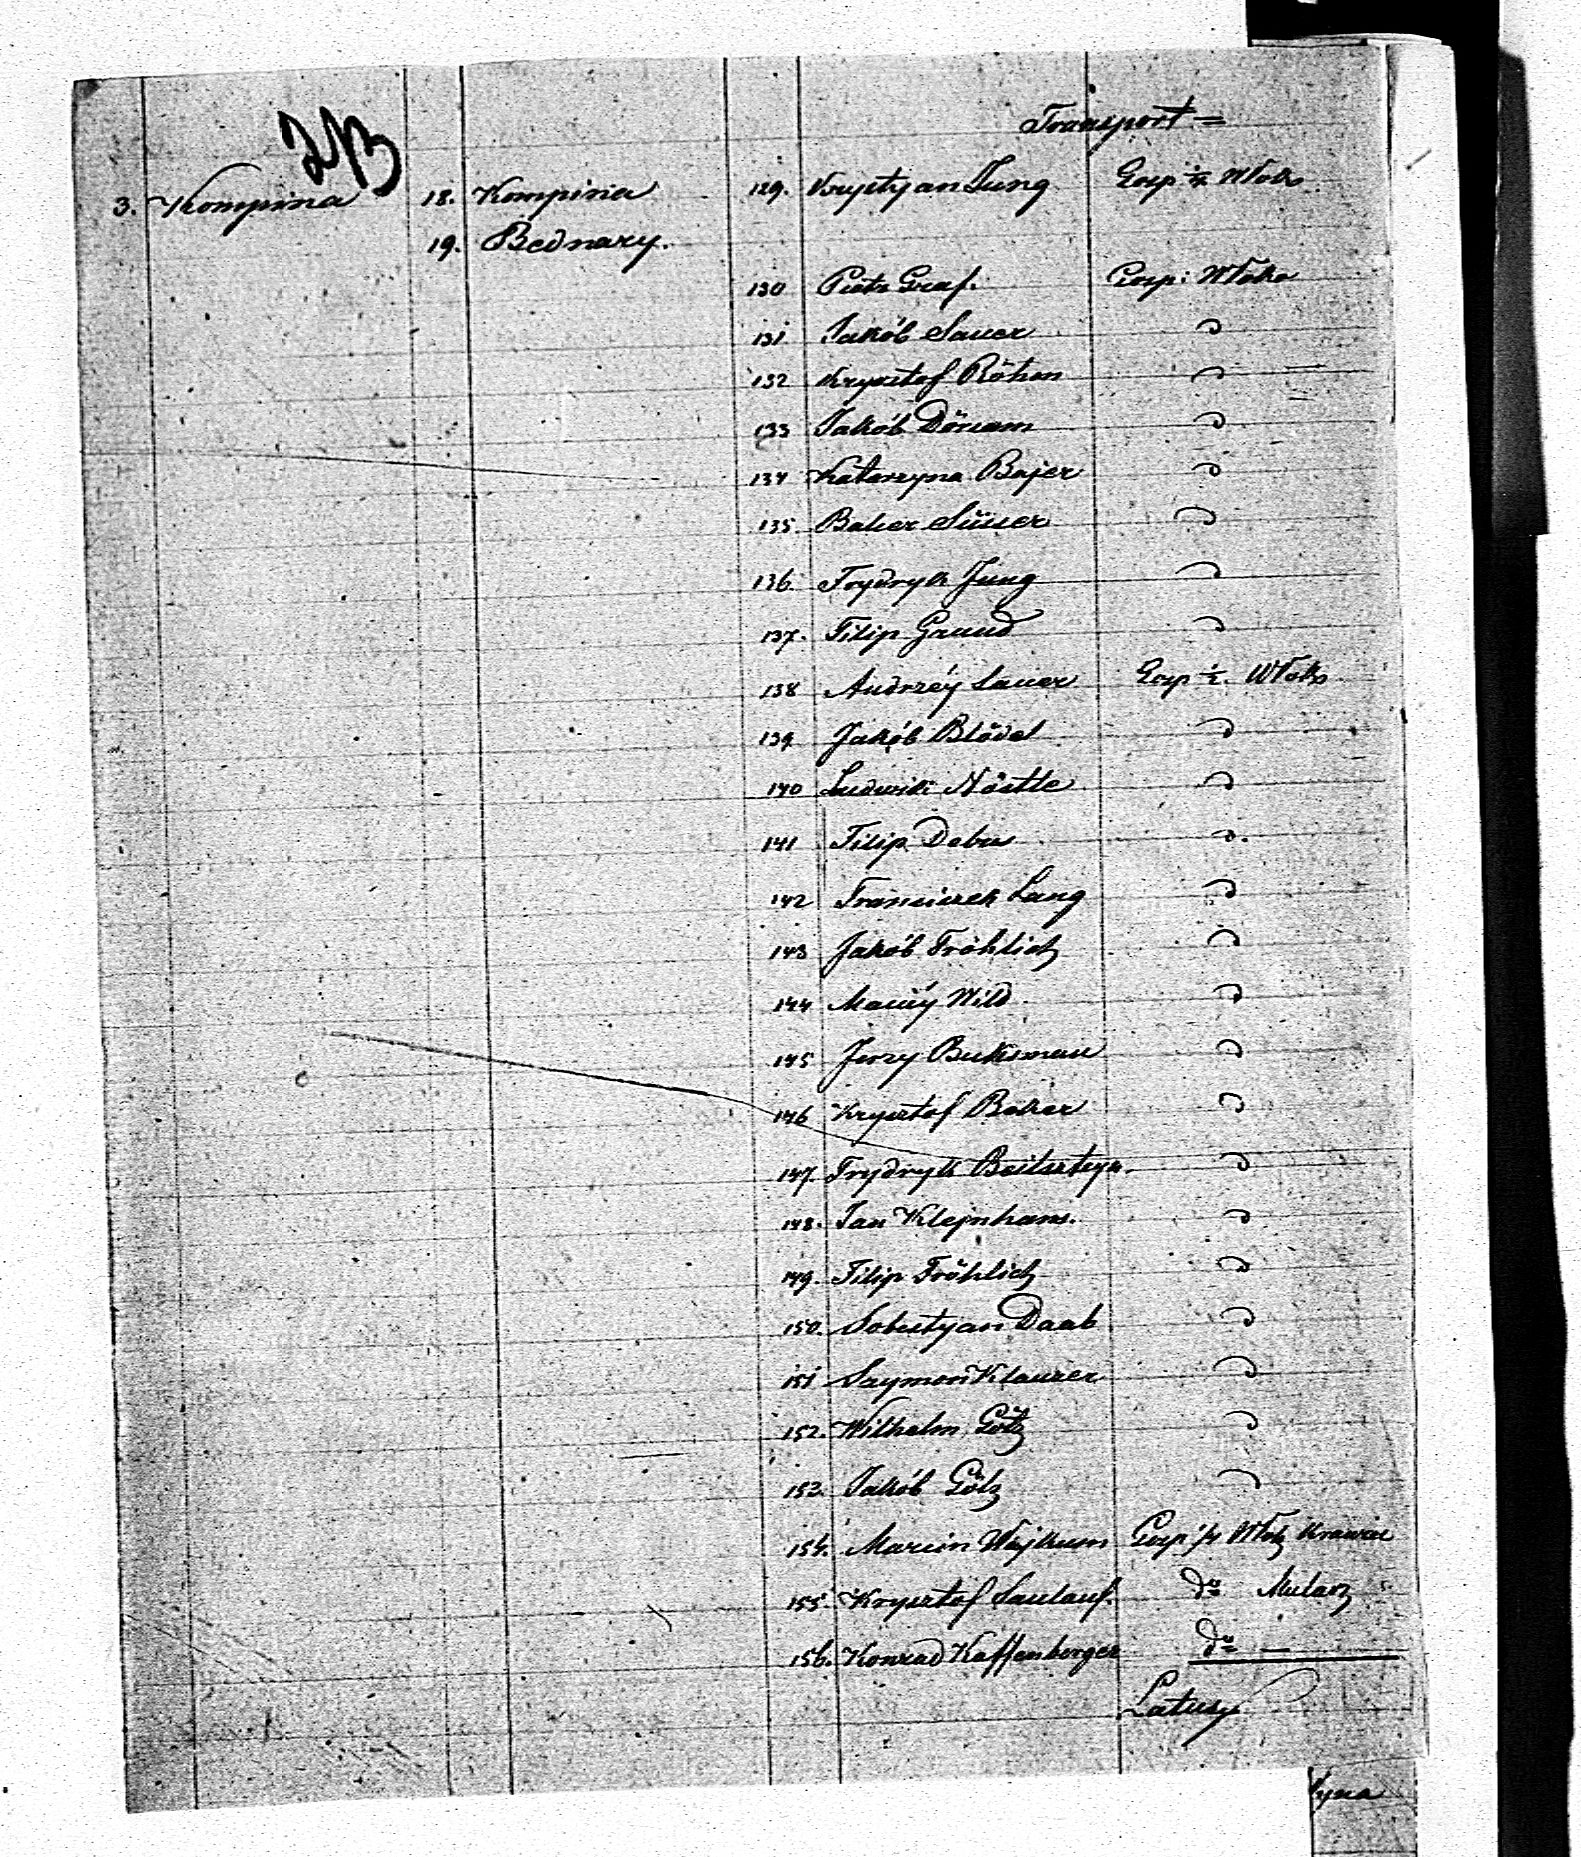 213
Transport =
3. Kompina 18. Kompina 129. Krystyan Jung Gosp ½ Włoko
19. Bednary.
130 Piotr Graf. Gosp: Włoko
131 Jakób Sauer
132 Krysztof Röhm
133 Jakób
134 Katarzyna Bajer
135. Baker
136. Frydryk Jung
137. Filip Grund
138 Andrzéy Lauer Gosp ½. Włoko
139 Jakób Blödel
140 Ludwik Nöstle
141 Filip Debus
142 Franciszek Lang
143 Jakób Fröhlich
144 Maciéy Wild
145 Jerzy Buksman
146 Krysztof Beker
147. Frydryk Beitszteyn
148. Jan Klejnhans.
149. Filip Fröhlich
150. Sobestyan Daab
151 Szymon Klauzer
152. Wilhelm Götz
153. Jakób Götz
154. Marcin Wejkum Gosp ¼ Włok Krawiec
155 Krysztof Saulauf. do Mularz
156. Konrad Kaffenberger do —
Latus